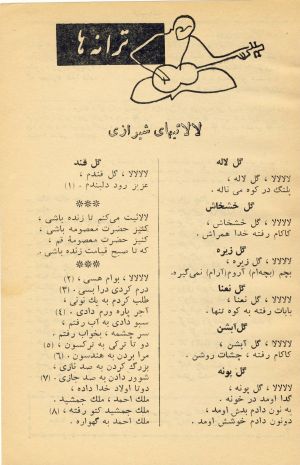 ترانه ها
لالائیهای شیرازی
گل لاله
لالالالا ، گل لاله ،
پلنگ در کوه می ناله .
گل خشخاش
لالالالا ، گل خشخاش ،
کاکام رفته خدا همراش .
گل زیره
لالالالا ، گل زیره ،
بچم (بچه‌ام) آروم (آرام) نمی‌گیره.
گل نعنا
لالالالا ، گل نعنا ،
بابات رفته به کوه تنها .
گل آبشن
لالالالا ، گل آبشن ،
کاکام رفته ، چشات روشن .
گل پونه
لالالالا ، گل پونه ،
گدا اومد در خونه .
به نون دادم بدش اومد ،
دونون دادم خوشش اومد .
گل قند
لالالالا ، گل قندم ،
عزیز رود دلبندم . (۱)
***
لالائیت می‌کنم تا زنده باشی ،
کنیز حضرت معصومه باشی ،
کنیز حضرت معصومهٔ قم ،
که تا صبح قیامت زنده باشی .
***
لالالالا ، بوام هسی ، (۲)
درم کردی درا بسی . (۳)
طلب کردم به یک نونی ،
آجر پاره ورم دادی . (۴)
سبو دادی به آب رفتم ،
سر چشمه ، بخواب رفتم .
دو تا ترکی به ترکسون ، (۵)
مرا بردن به هندسون . (۶)
بزرگ کردن به صد نازی ،
شوور دادن به صد جازی . (۷)
دوتا اولاد خدا داده ،
ملك احمد ، ملك جمشید .
ملك جمشید کتو رفته ، (۸)
ملك احمد به گهواره .